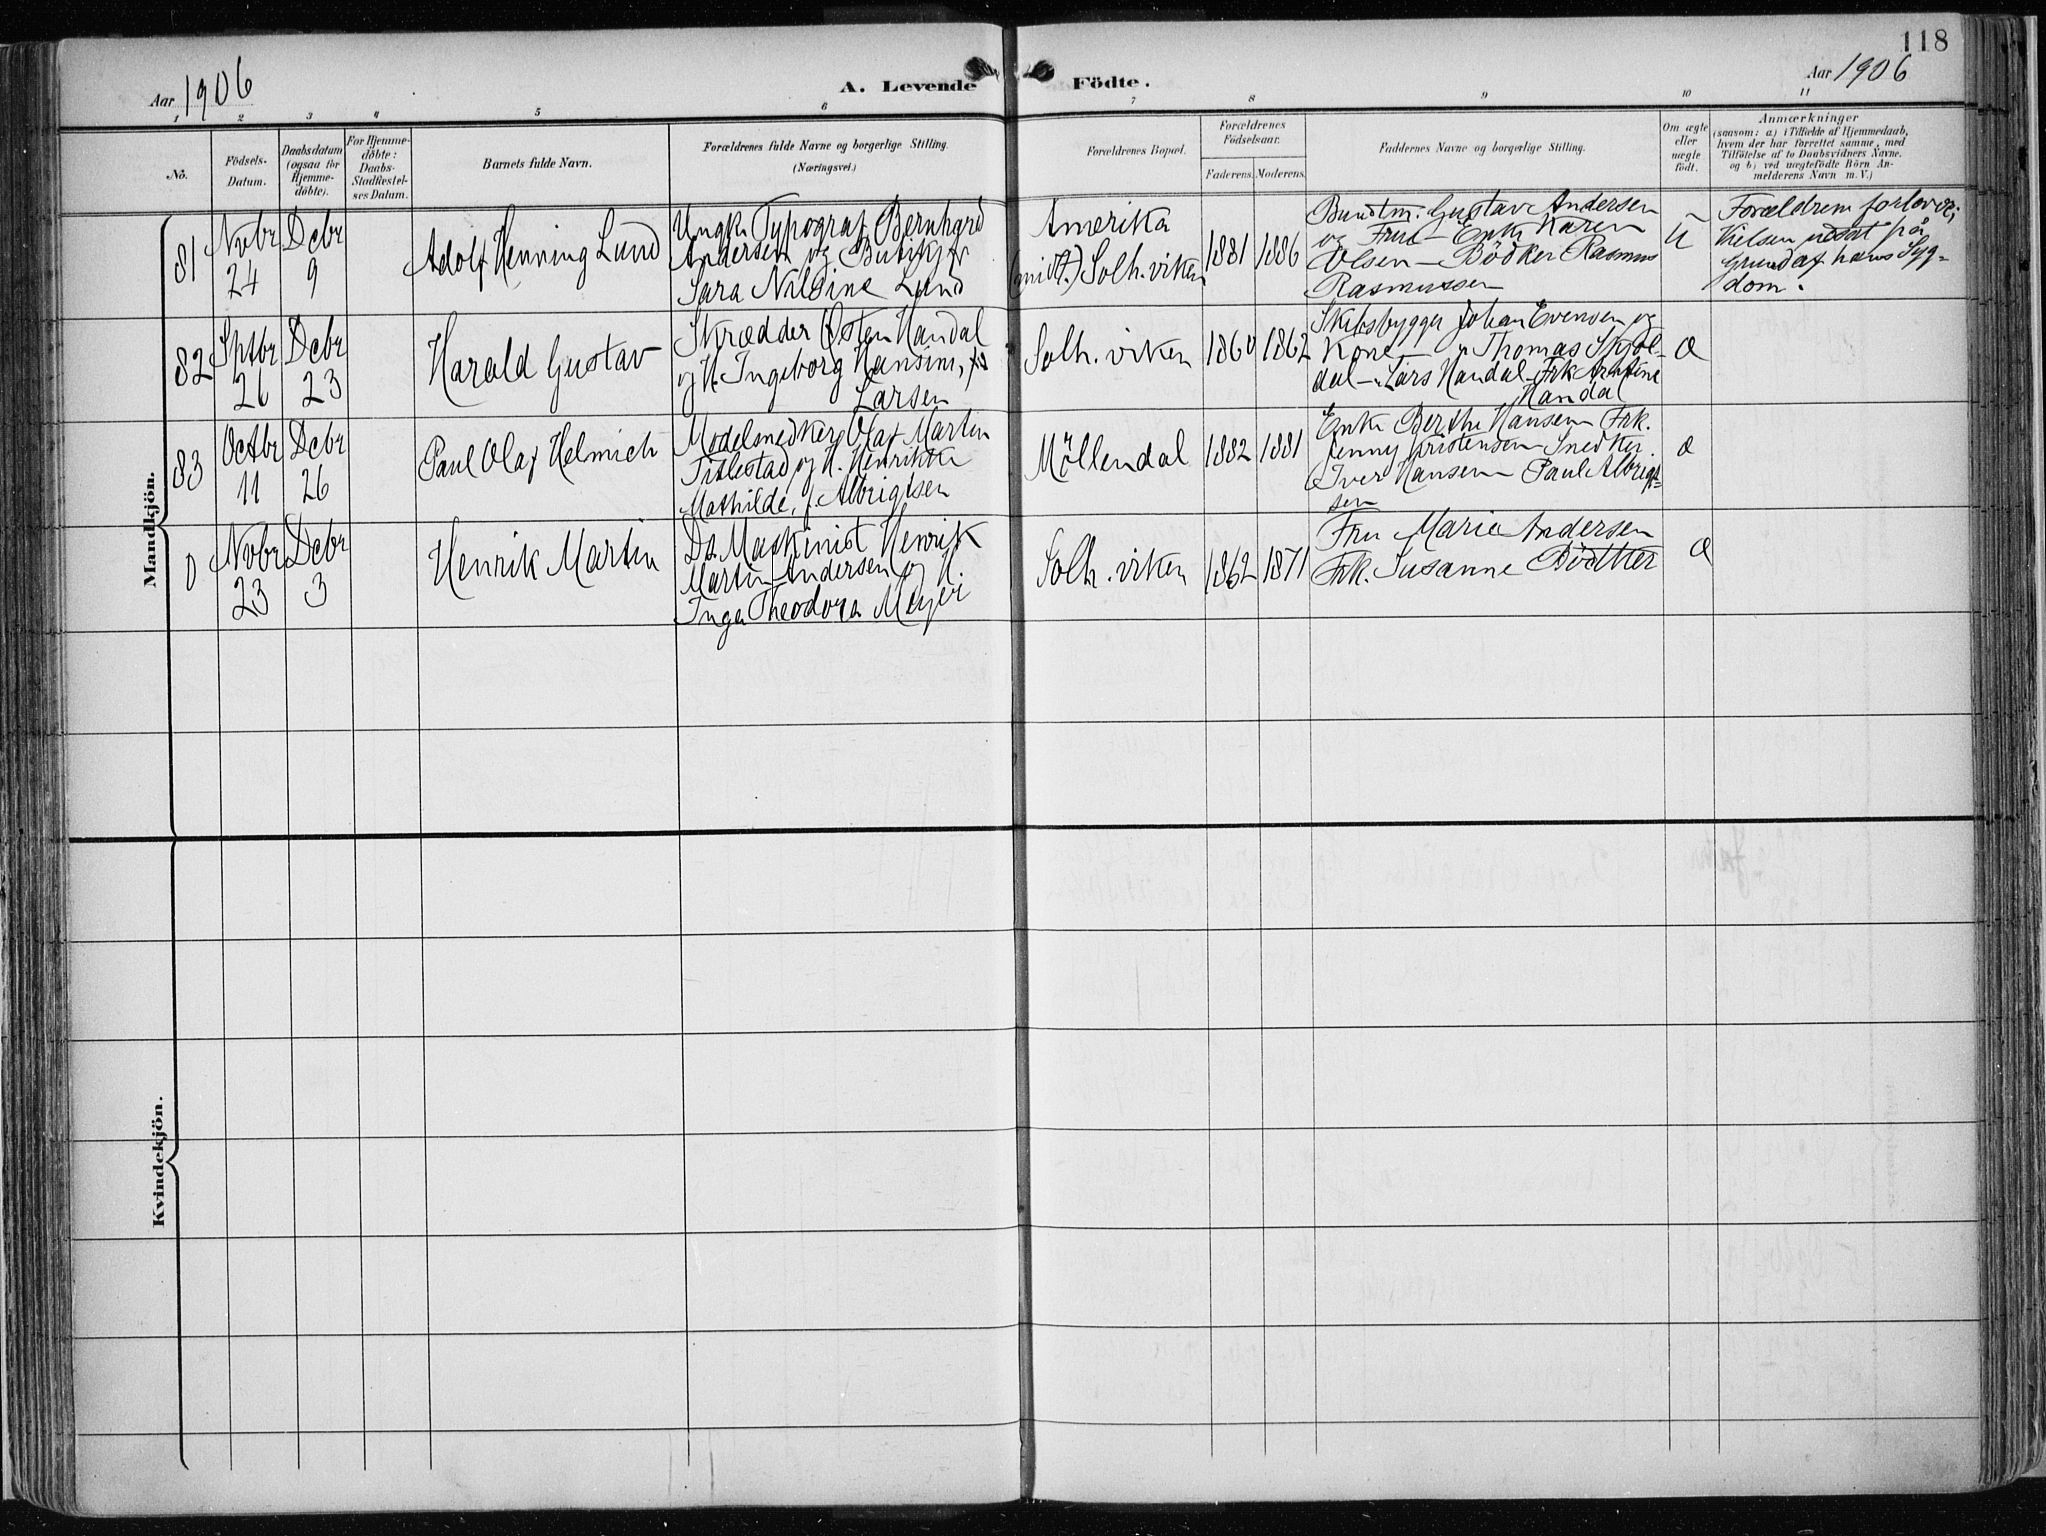 118
Aar 1906
A. Levende Födte.
Aar 1906
1 2 3 4 5 6 7 8 9 10 11
No.
Födsels-Datum.
Daabsdatum (ogsaa for Hjemme-döbte).
For Hjemme-döbte: Daabs-Stadfæstel-ses Datum.
Barnets fulde Navn.
Forældrenes fulde Navne og borgerlige Stilling.
(Næringsvei.)
Forældrenes Bopæl.
Forældrenes Födselsaar.
Faderens. Moderens.
Faddernes Navne og borgerlige Stilling.
Om ægte eller uægte födt.
Anmærkninger
(saasom: a) i Tilfælde af Hjemmedaab,
hvem der har forrettet samme, med
Tilföielse af to Daabsvidners Navne.
og b) ved uægtefödte Börn An-
melderens Navn m. V.)
Mandkjön.
81
Novbr
24
Dcbr
9
Adolf Henning Lund
Ungk. Typograf Bernhard
Andersen og
Sara Nilsine Lund
Amerika
(midt.) Solh.viken
1881 1886
Bundtm. Gustav Andersen
og Frue – Enke Karen
Olsen – Bödker Rasmus
Rasmussen
U
Forældrene forlovet;
Vielsen udsat på
Grund af hans Syg-
dom.
82
Sptbr
26
Dcbr
23
Harald Gustav
Skrædder Østen Handal
og H. Ingeborg Hansine, f.
Larsen
Solh. viken
1860 1862
Skibsbygger Johan Evensen og
Kone – Thomas
dal – Lars Handal – Frk
Handal
Æ
83
Octbr
11
Dcbr
26
Paul Olaf Helmich
Modelsnedker Olaf Martin
Titlestad og H. Henrikke
Mathilde, f. Albrigtsen
Möllendal
1882 1881
Enke Berthe Hansen Frk.
Jenny Kristensen Snedker
Iver Hansen Paul Albrigt-
sen
æ
0
Novbr
23
Dcbr
3
Henrik Martin
Ds. Maskinist Henrik
Martin Andersen og H.
Inga Theodora Meyer
Solh. viken
1862 1871
Fru Marie Andersen
Frk. Susanne Bödtker
Æ
Kvindekjön.